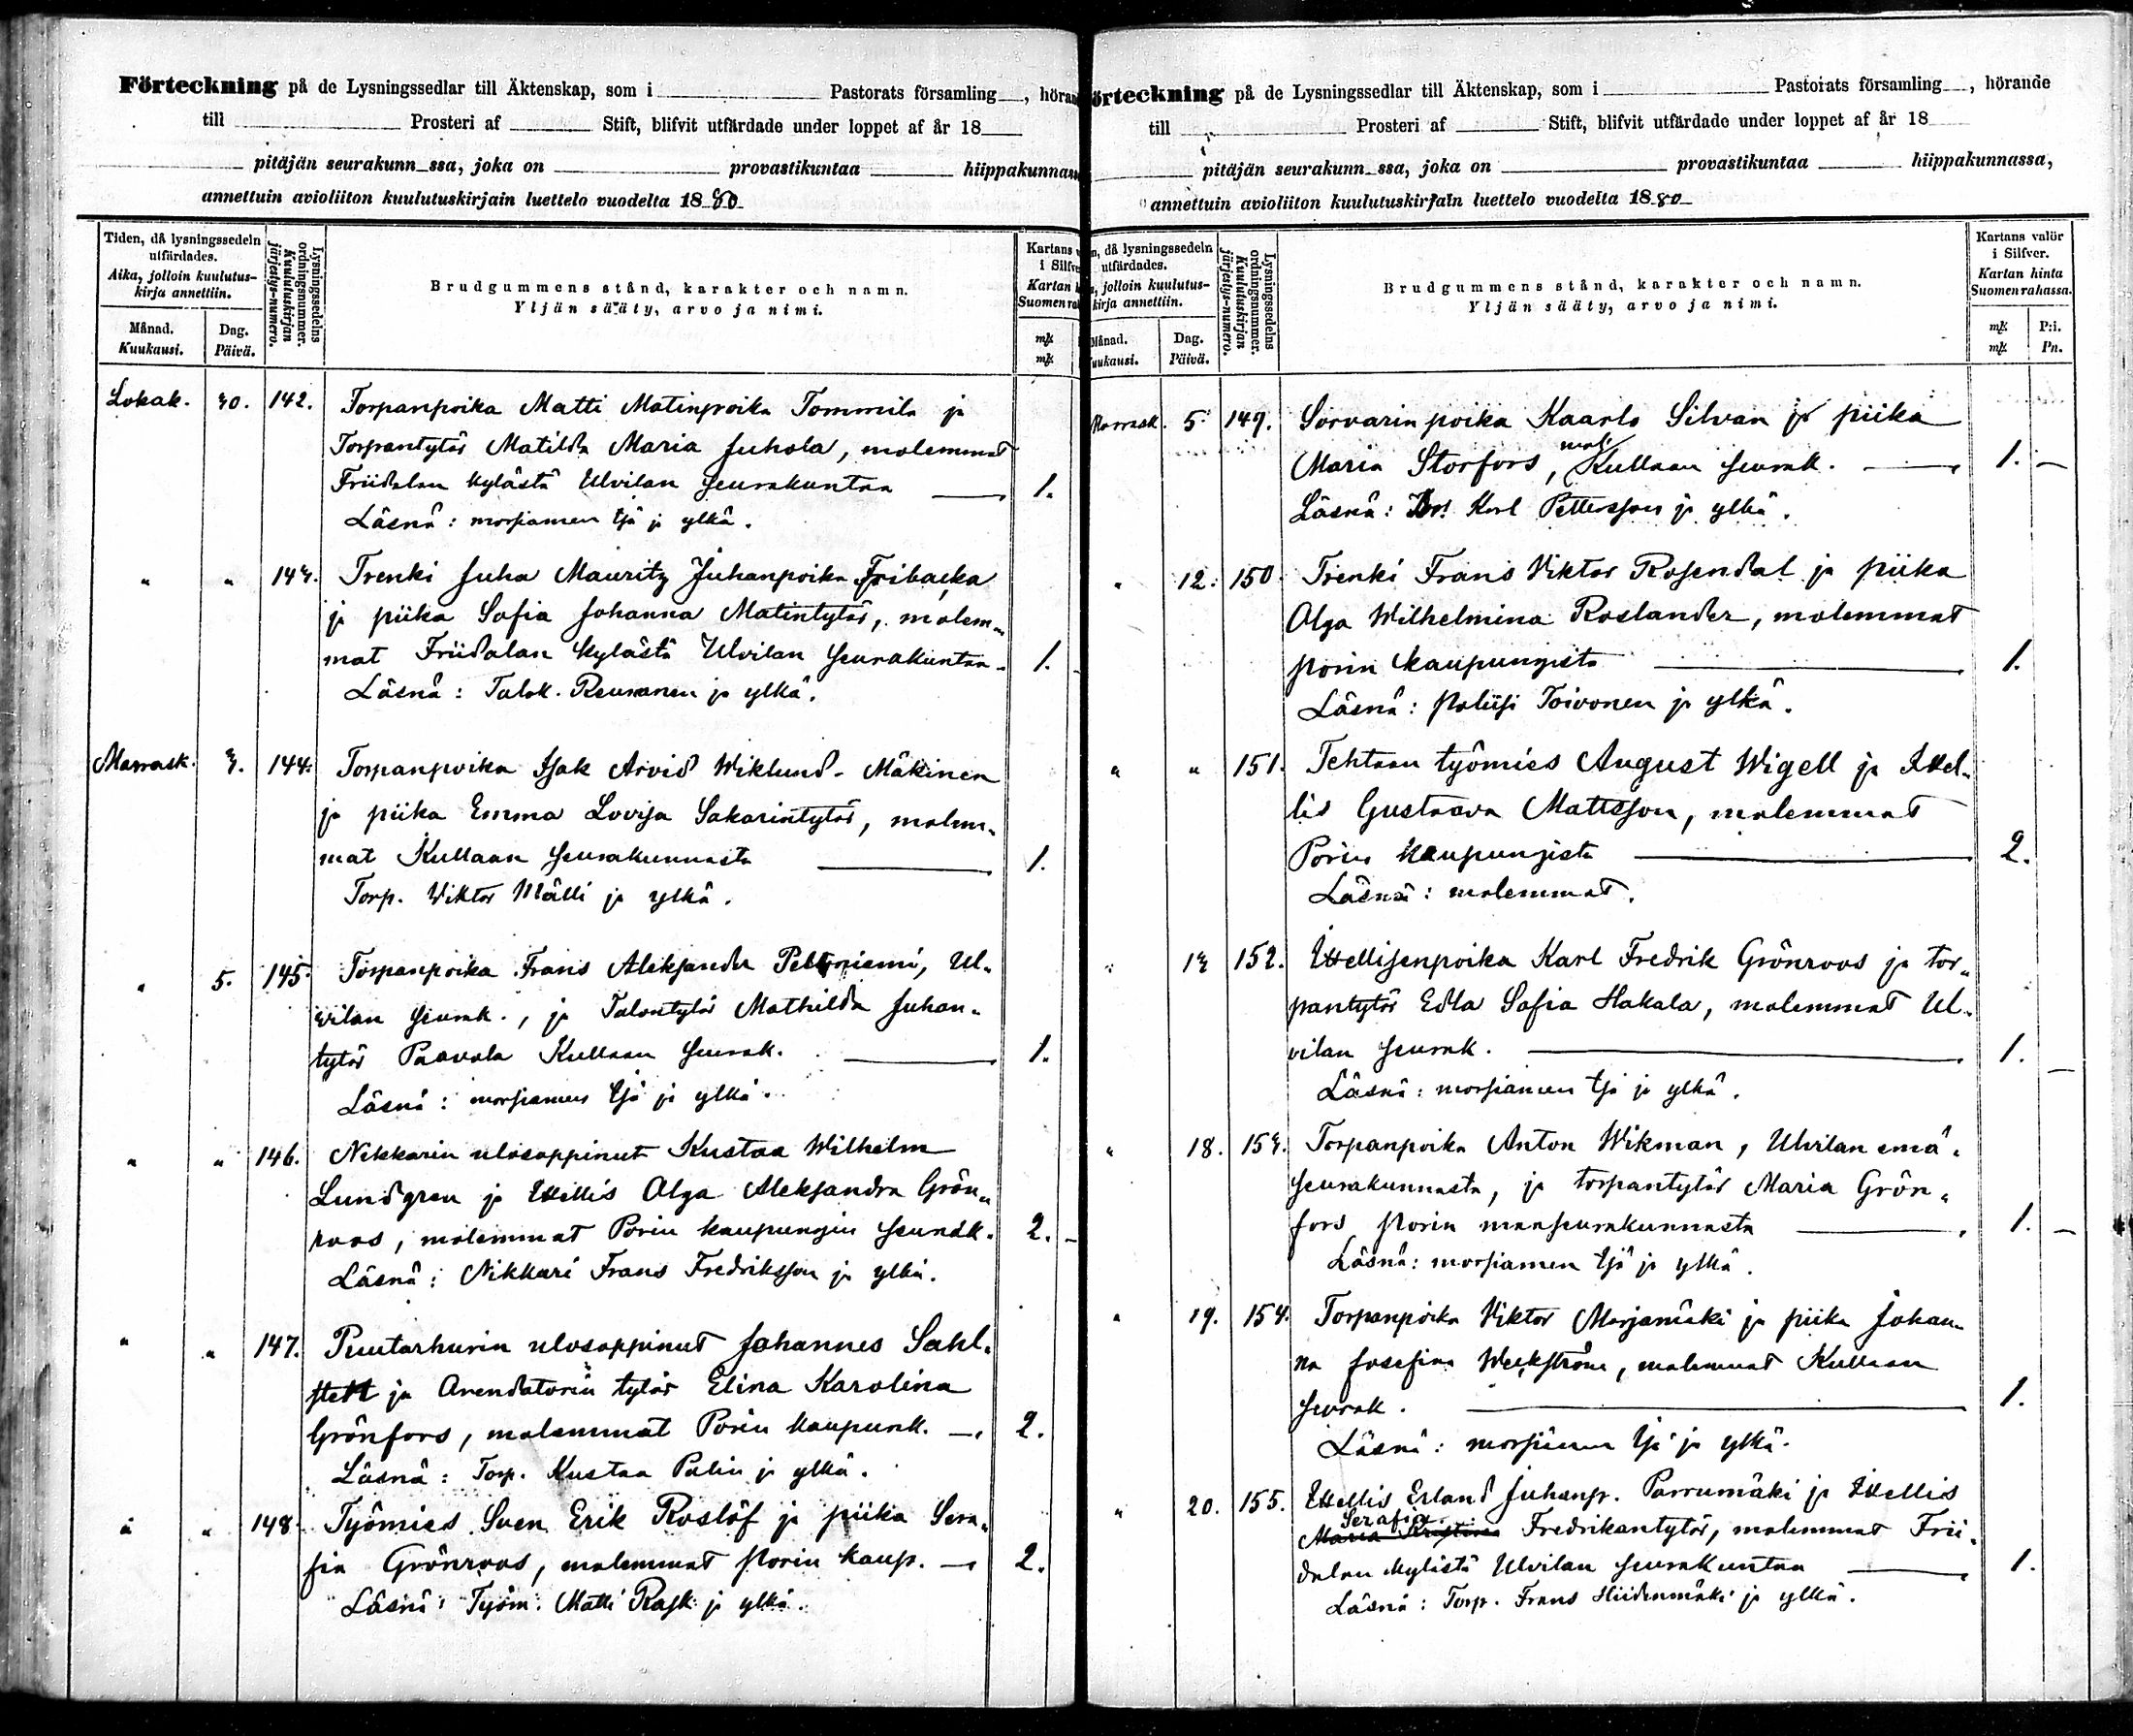 Förteckning på de Lysningssedlar till Äktenskap, som i Pastorats församling, höran
till Prosteri af Stift, blifvit utfärdade under loppet af år 18
pitäjän seurakunn ssa, joka on provastikuntaa hiippakunnas
annettuin avioliiton kuulutuskirjain luettelo vuodelta 1880
Tiden, då lysningssedeln utfärdades.
Aika, jolloin kuulutus-kirja annettiin.
Månad.
Kuukausi.
Dag.
Päivä.
Lysningssedelns ordningsnummer.
Kuulutuskirjan järjestys-numero.
Brudgummens stånd, karakter och namn.
Yljän sääty, arvo ja nimi.
Kartans
i Silfve
Kartan
Suomen ra
mk
mk
Lokak. 30. 142. Torpanpoika Matti Matinpoika Tommila ja
Torpantytär Matilda Maria Juhola, molemmat
Friidalan kylästä Ulvilan seurakuntaa 1.
Läsnä: morsiamen isä ja ylkä.
" " 143. Trenki Juha Mauritz Juhanpoika Fribacka
ja piika Sofia Johanna Matintytär, molem-
mat Friidalan kylästä Ulvilan seurakuntaa 1.
Läsnä: Talok. Reunanen ja ylkä.
Marrask. 3. 144. Torpanpoika Isak Arvid Wiklund-Mäkinen
ja piika Emma Lovisa Sakarintytär, molem-
mat Kullaan seurakunnasta 1.
Torp. Wiktor Mälli ja ylkä.
" 5. 145. Torpanpoika Frans Aleksander Peltoniemi, Ul-
vilan seurak., ja Talontytär Mathilda Juhan-
tytär Paavola Kullaan seurak. 1.
Läsnä: morsiamen isä ja ylkä.
" " 146. Nikkarin ulosoppinut Kustaa Wilhelm
Lundgren ja Itellis Olga Aleksandra Grön-
roos, molemmat Porin kaupungin seurak. 2.
Läsnä: Nikkari Frans Fredriksson ja ylkä.
" " 147. Puutarhurin ulosoppinut Johannes Sahl-
stett ja Arendatorin tytär Elina Karolina
Grönfors, molemmat Porin kaupunk. 2.
Läsnä: Torp. Kustaa Palin ja ylkä.
" " 148. Työmies Sven Erik Roslöf ja piika Sera-
fia Grönroos, molemmat Porin kaup. 2.
Läsnä: Työm. Matti Rask ja ylkä.
örteckning på de Lysningssedlar till Äktenskap, som i Pastorats församling, hörande
till Prosteri af Stift, blifvit utfärdade under loppet af år 18
pitäjän seurakunn ssa, joka on provastikuntaa hiippakunnassa,
annettuin avioliiton kuulutuskirjain luettelo vuodelta 1880
n, då lysningssedeln utfärdades.
a, jolloin kuulutus-kirja annettiin.
Månad.
uukausi.
Dag.
Päivä.
Lysningssedelns ordningsnummer.
Kuulutuskirjan järjestys-numero.
Brudgummens stånd, karakter och namn.
Yljän sääty, arvo ja nimi.
Kartans valör
i Silfver.
Kartan hinta
Suomen rahassa.
mk P:i.
mk Pn.
Marrask. 5. 149. Sorvarinpoika Kaarlo Silvan ja piika
Maria Storfors, mol. Kullaan seurak. 1. —
Läsnä: Karl Pettersson ja ylkä.
" 12. 150 Trenki Frans Viktor Rosendal ja piika
Olga Wilhelmina Roslander, molemmat
Porin kaupungista 1.
Läsnä: Poliisi Toivonen ja ylkä.
" " 151. Tehtaan työmies August Wigell ja Itel-
lis Gustaava Mattsson, molemmat
Porin kaupungista 2.
Läsnä: molemmat.
" 13 152. Itellisenpoika Karl Fredrik Grönroos ja tor-
pantytär Edla Sofia Hakala, molemmat Ul-
vilan seurak. 1. —
Läsnä: morsiamen isä ja ylkä.
" 18. 153. Torpanpoika Anton Wikman, Ulvilan emä-
seurakunnasta, ja torpantytär Maria Grön-
fors Porin maaseurakunnasta 1. —
Läsnä: morsiamen isä ja ylkä.
" 19. 154. Torpanpoika Viktor Marjamäki ja piika Johan-
na Josefina Weckström, molemmat Kullaan
seurak. 1.
Läsnä: morsiamen isä ja ylkä.
" 20. 155. Itellis Erland Juhanp. Parrumäki ja Itellis
Serafia
Maria Kristina Fredrikantytär, molemmat Frii-
dalan kylästä Ulvilan seurakuntaa 1.
Läsnä: Torp. Frans Hiidenmäki ja ylkä.